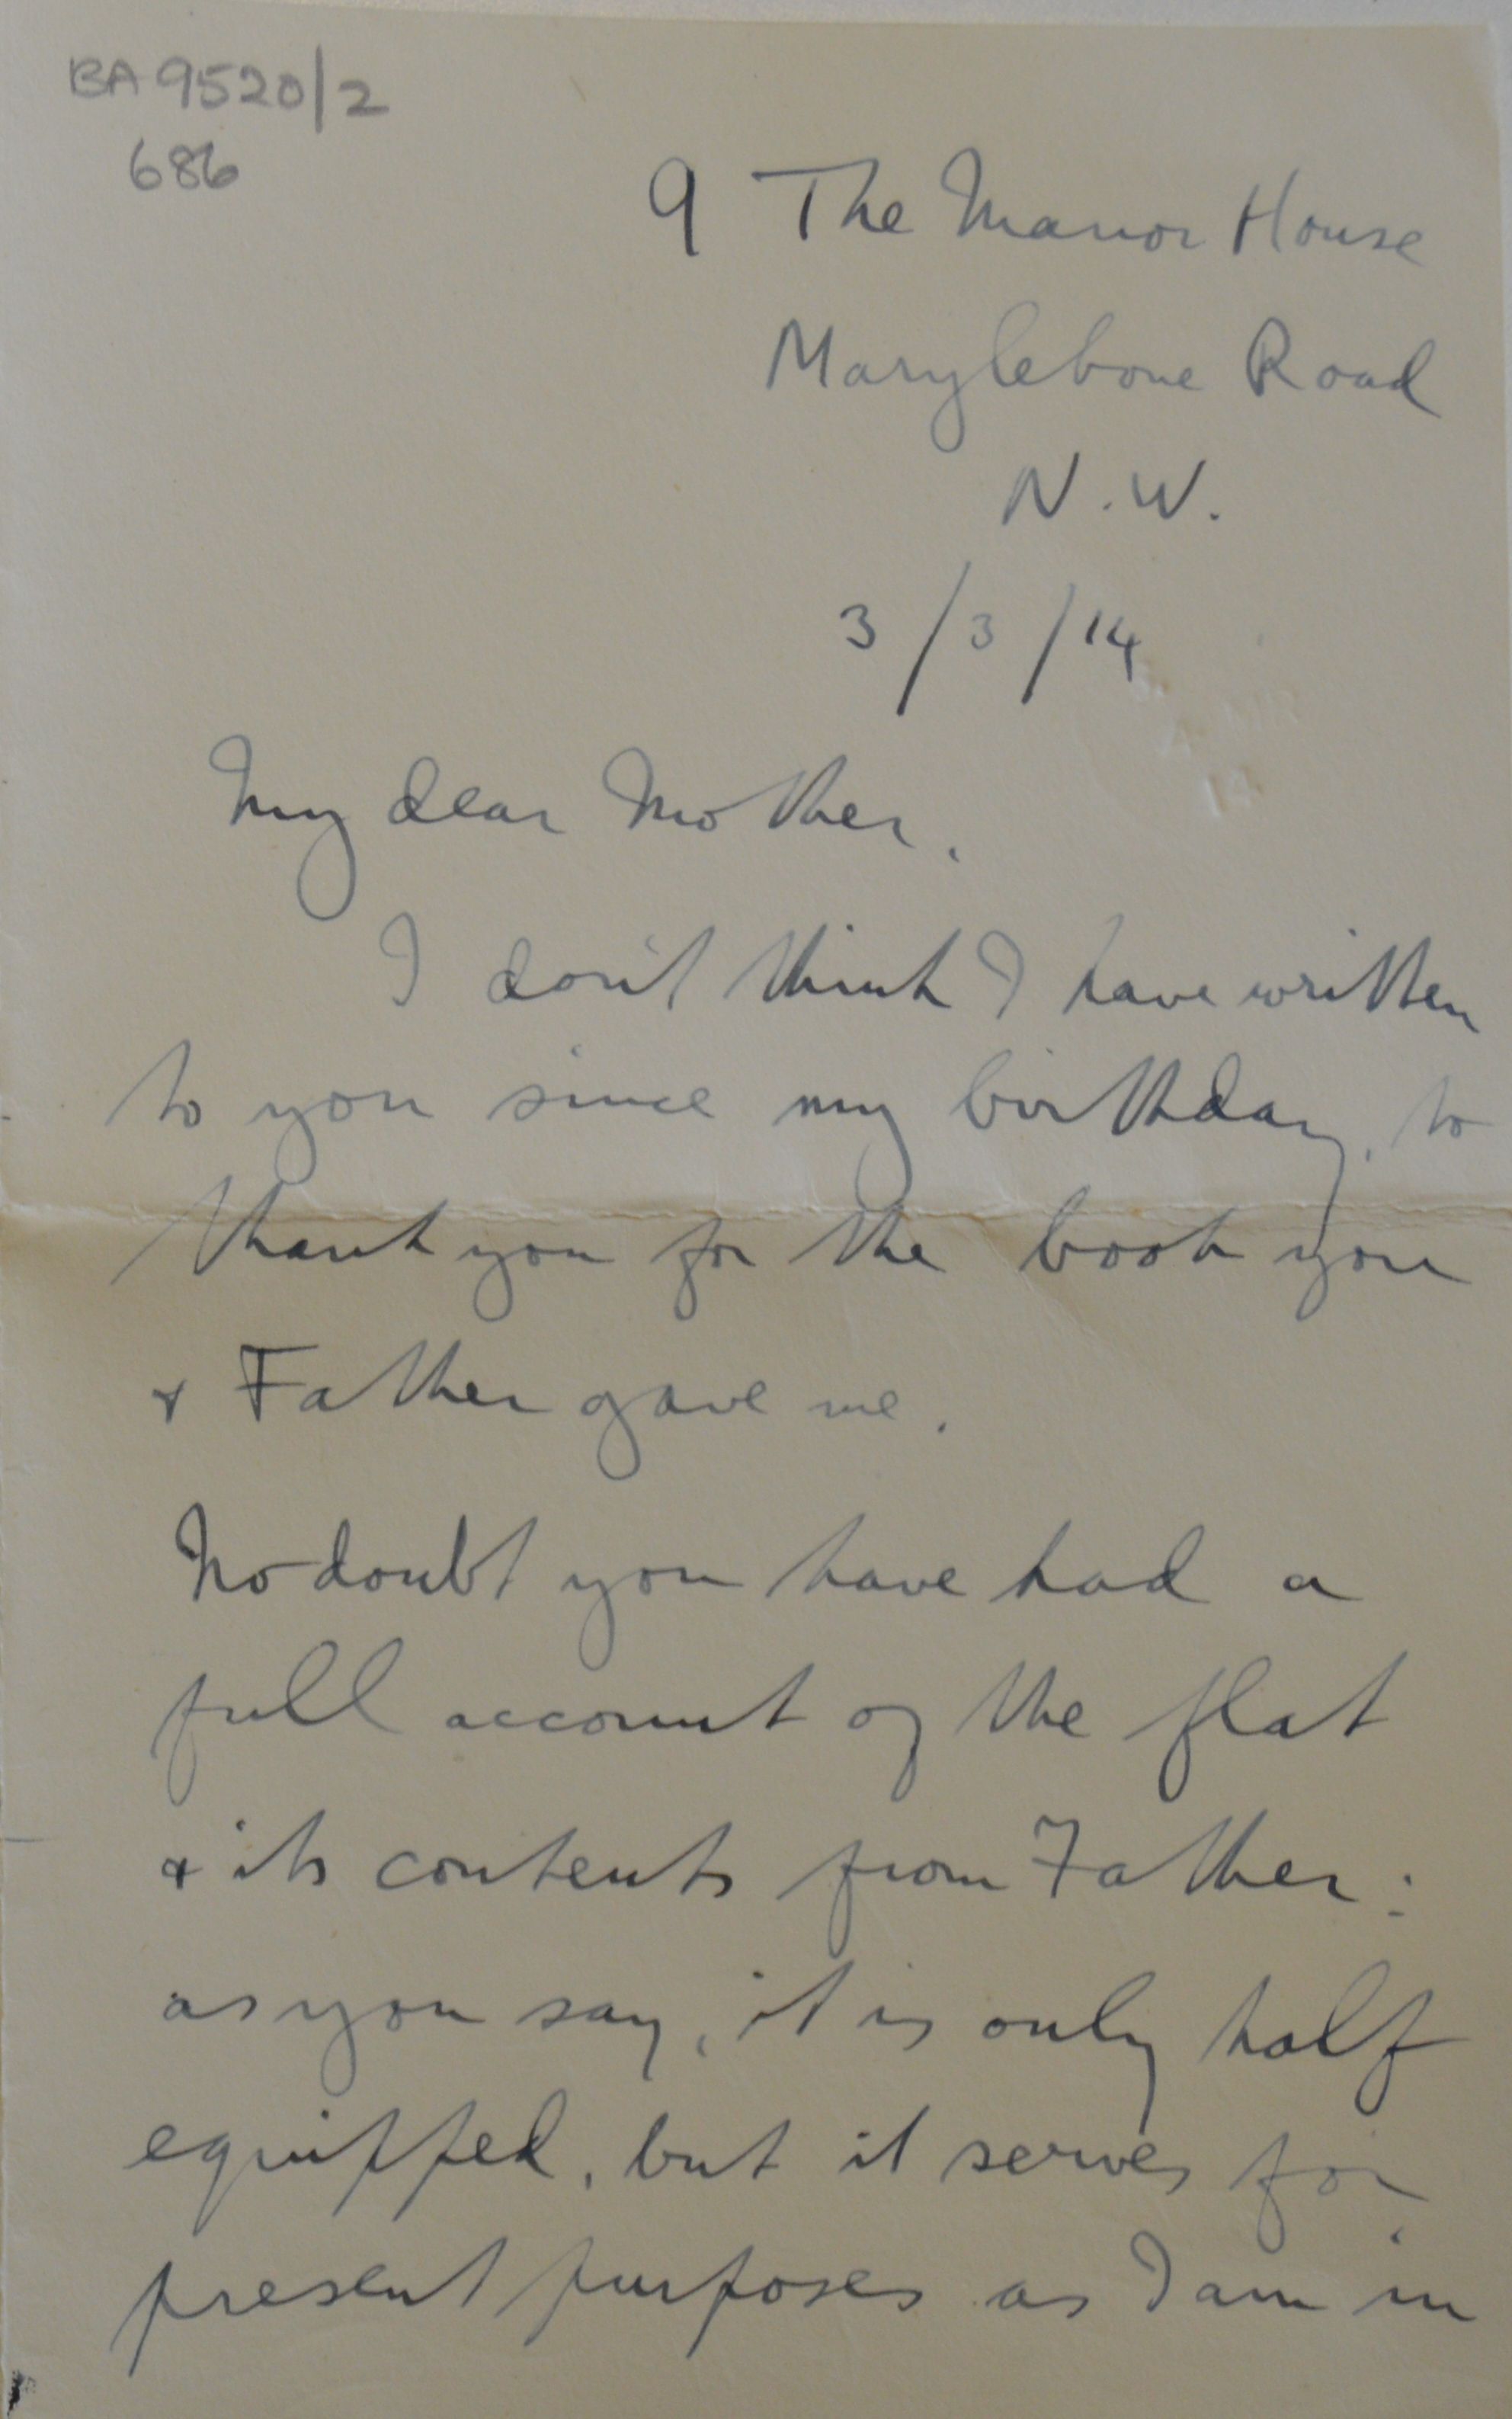 BA 9520/2
686
9 The Manor House
Marylebone Road
N.W.
3/3/14
My dear Mother,
I don't think I have written
to you since my birthday, to
thank you for the book you
& Father gave me.
No doubt you have had a
full account of the flat
& its contents from Father:
as you say, it is only half
equipped, but it serves for
present purposes as I am in